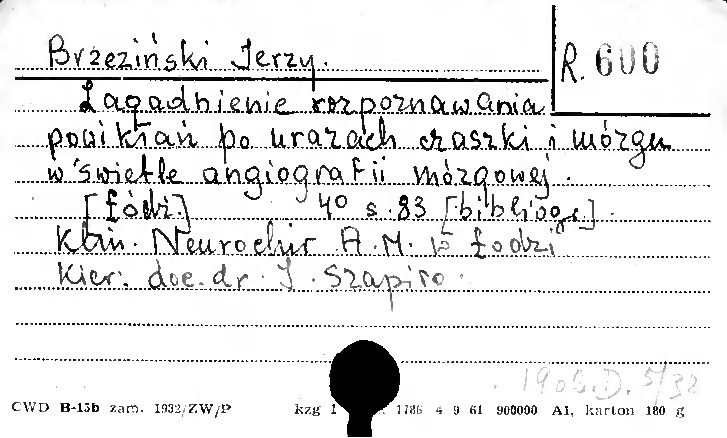 Brzeziński Jerzy.
R. 600
Zagadnienie rozpoznawania
powikłań po urazach czaszki i mózgu
w świetle angiografii mózgowej.
[Łódź.] 4° s. 83 [bibliogr].
Klin. Neurochir A.M. w Łodzi
Kier: doc. dr. J. Szapiro.
CWD B-15b zam. 1932/ZW/P kzg 1 1786 4 9 61 900000 A1, karton 180 g